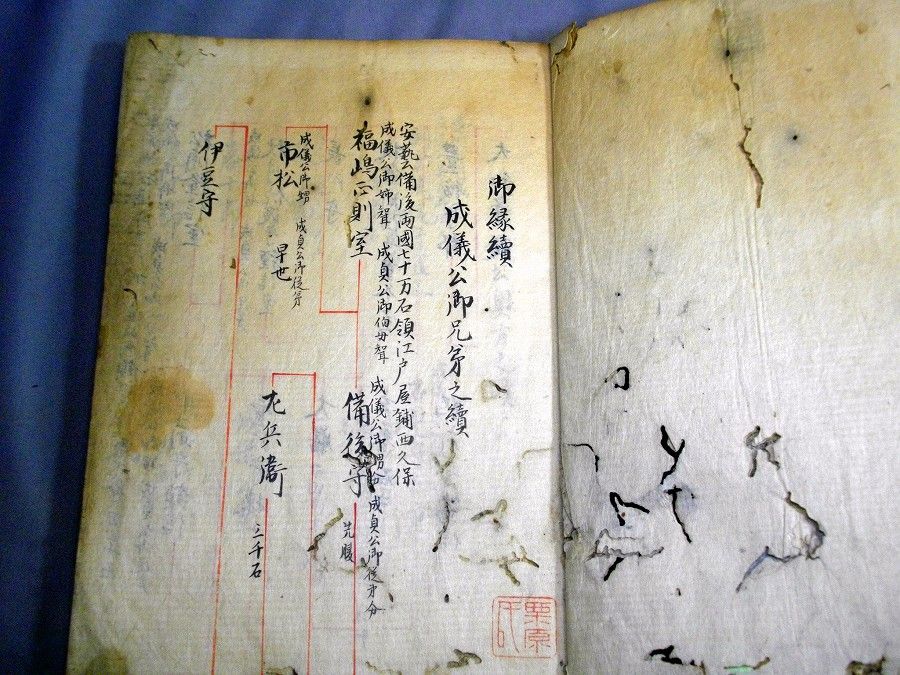 御縁續
成儀公御兄弟之續
安藝備後両國七十万石領江户屋鋪西久保
成儀公御姉聟 成貞公御伯母聟
福嶋正則室
成儀公御甥 成貞公御従弟分
備後守
先腹
成儀公御甥 成貞公御従弟
市松
早世
左兵衛
三千石
伊豆守
栗原氏印